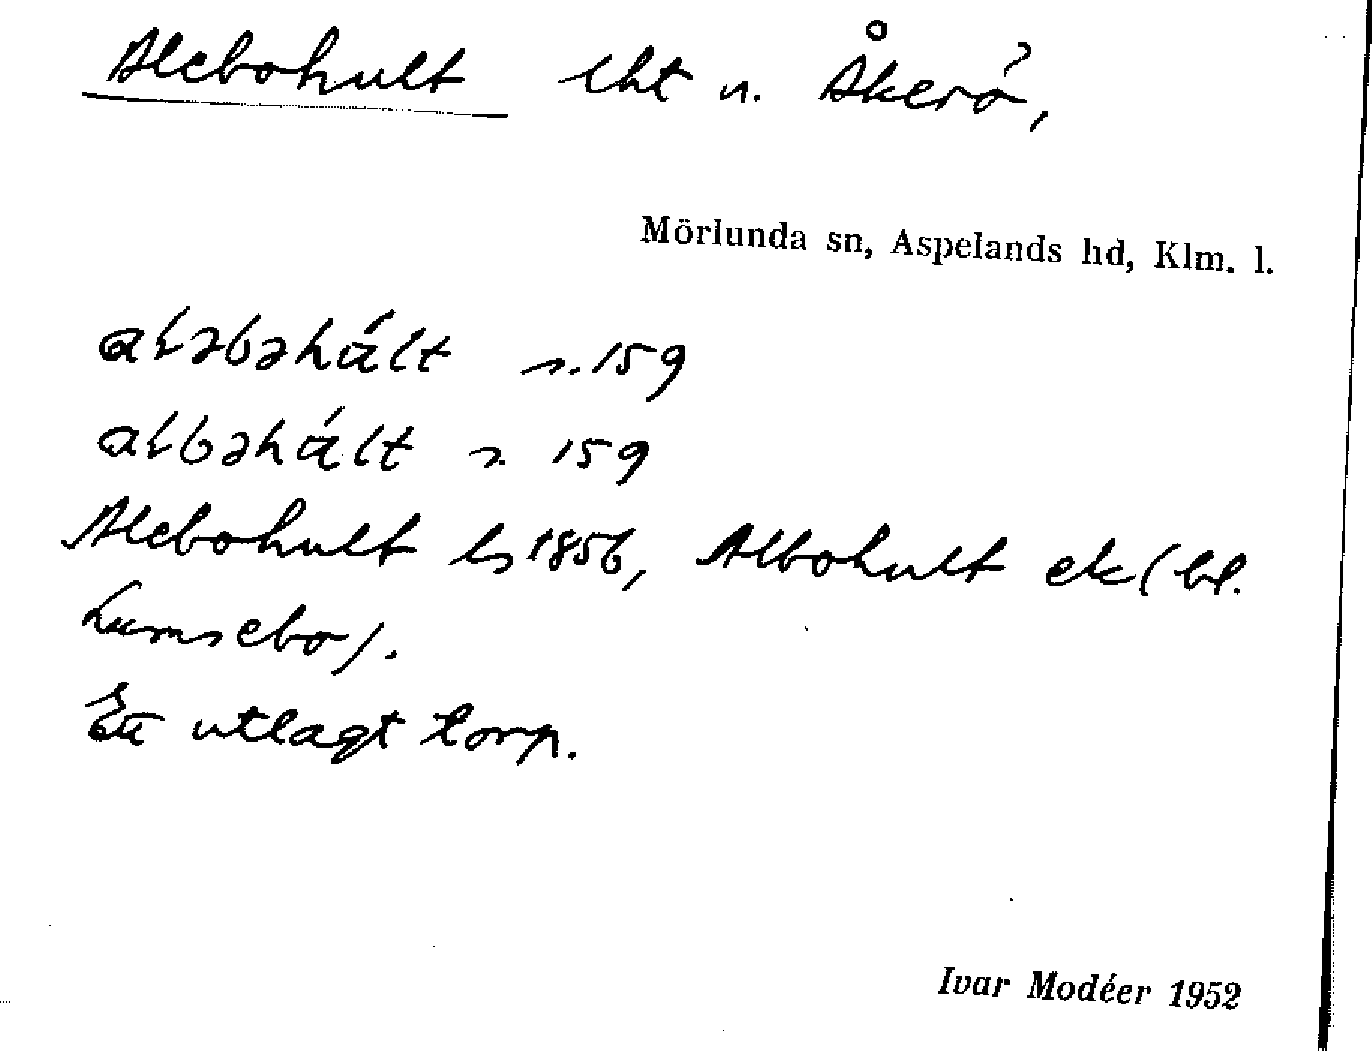 Alebohult lht u. Åkerö,
Mörlunda sn, Aspelands hd, Klm. l.
s. 159
s. 159
Alebohult ls 1856, Albohult ek (bl.
Lumsebo).
Ett utlagt torp.
Ivar Modéer 1952